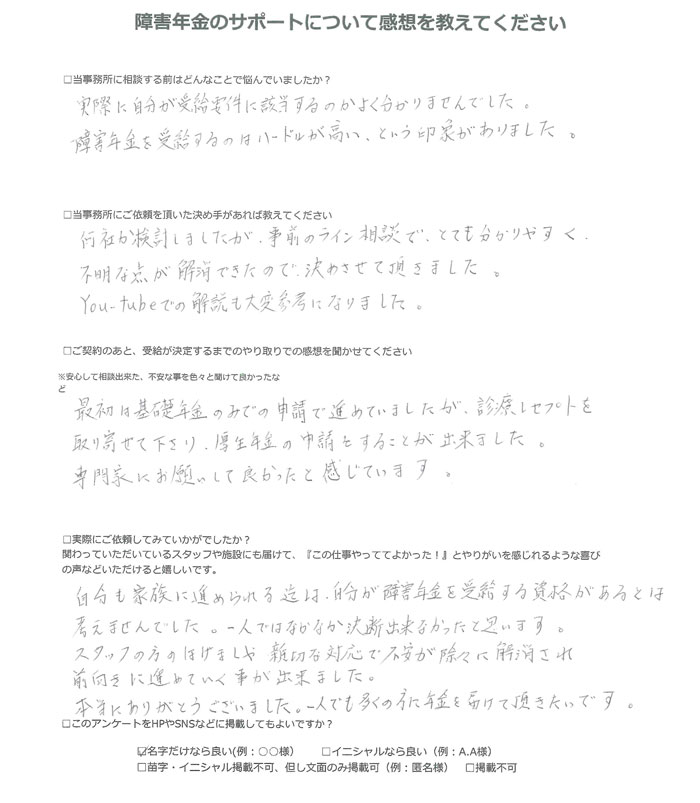 障害年金のサポートについて感想を教えてください
□当事務所に相談する前はどんなことで悩んでいましたか？
実際に自分が受給要件に該当するのかよく分かりませんでした。
障害年金を受給するのはハードルが高い、という印象がありました。
□当事務所にご依頼を頂いた決め手があれば教えてください
何社か検討しましたが、事前のライン相談で、とても分かりやすく、
不明な点が解消できたので、決めさせて頂きました。
You-tubeでの解説も大変参考になりました。
□ご契約のあと、受給が決定するまでのやり取りでの感想を聞かせてください
※安心して相談出来た、不安な事を色々と聞けて良かったな
ど
最初は基礎年金のみでの申請で進めていましたが、診療レセプトを
取り寄せて下さり、厚生年金の申請をすることが出来ました。
専門家にお願いして良かったと感じています。
□実際にご依頼してみていかがでしたか？
関わっていただいているスタッフや施設にも届けて、『この仕事やっててよかった！』とやりがいを感じれるような喜び
の声などいただけると嬉しいです。
自分も家族に進められる迄は、自分が障害年金を受給する資格があるとは
考えませんでした。一人ではなかなか決断出来なかったと思います。
スタッフの方のはげましや親切な対応で不安が除々に解消され
前向きに進めていく事が出来ました。
本当にありがとうございました。一人でも多くの方に年金を届けて頂きたいです。
□このアンケートをHPやSNSなどに掲載してもよいですか？
☑名字だけなら良い(例：○○様)　□イニシャルなら良い（例：A.A様）
□苗字・イニシャル掲載不可、但し文面のみ掲載可（例：匿名様）　□掲載不可